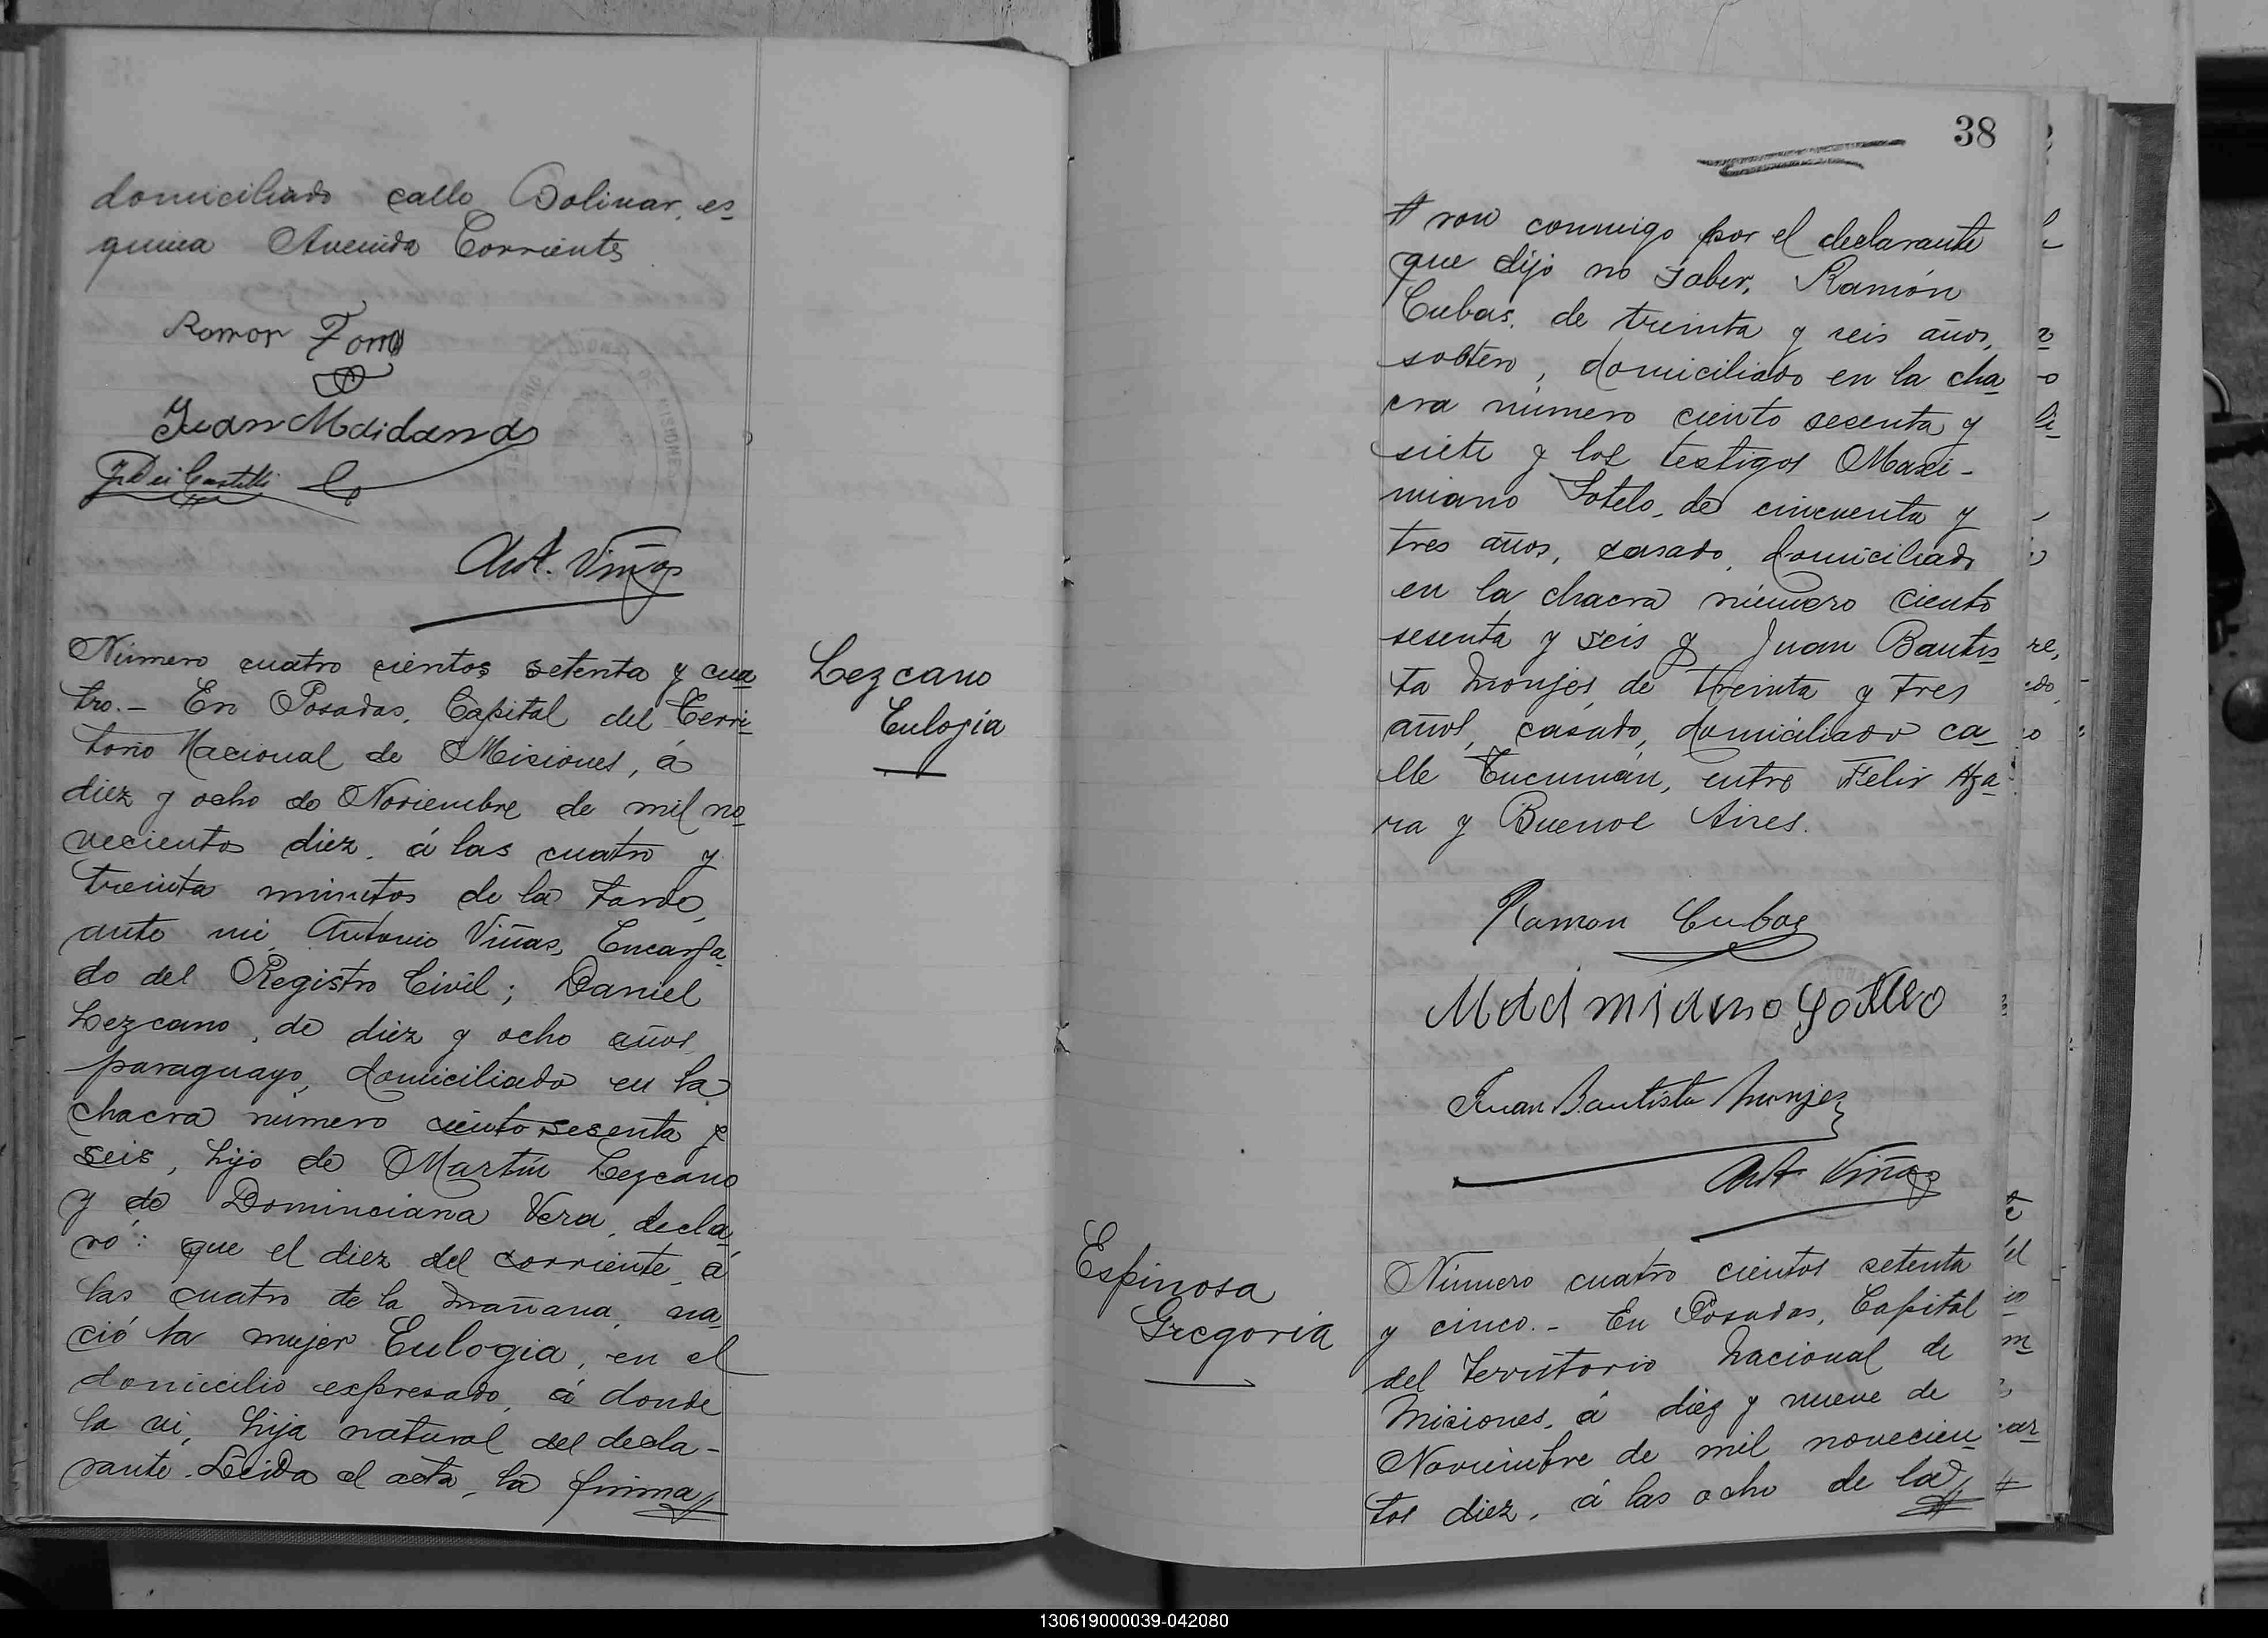 domiciliado calle Bolivar, es-
quina Avenida Corrientes
Ramon
Juan Maidana
Ant. Viñas
Número cuatro cientos setenta y cua-
tro.- En Posadas, Capital del Terri-
torio Nacional de Misiones, á
diez y ocho de Noviembre de mil no-
vecientos diez, á las cuatro y
treinta minutos de la tarde,
ante mi, Antonio Viñas, Encarga-
do del Registro Civil; Daniel
Lezcano, de diez y ocho años,
paraguayo, domiciliado en la
chacra número ciento sesenta y
seis, hijo de Martín Lezcano
y de Dominciana Vera, decla-
ró: que el diez del corriente, á
las cuatro de la mañana, na-
ció la mujer Eulogia, en el
domicilio expresado, á donde
la vi, hija natural del decla-
rante. Leida el acta, la firma
Lezcano
Eulogia
38
ron conmigo por el declarante
que dijo no saber, Ramón
Cubas, de treinta y seis años,
soltero, domiciliado en la cha-
cra número ciento sesenta y
siete y los testigos Maxi-
miano Sotelo, de cincuenta y
tres años, casado, domiciliado
en la chacra número ciento
sesenta y seis y Juan Bautis-
ta Monjes, de treinta y tres
años, casado, domiciliado ca-
lle Tucumán, entre Felix Aza-
ra y Buenos Aires.
Ramon Cubas
Macimiano Sotelo
Juan Bautista Monjes
Ant Viñas
Espinosa
Gregoria
Número cuatro cientos setenta
y cinco.- En Posadas, Capital
del Territorio Nacional de
Misiones, á diez y nueve de
Noviembre de mil novecien-
tos diez, á las ocho de la
130619000039-042080